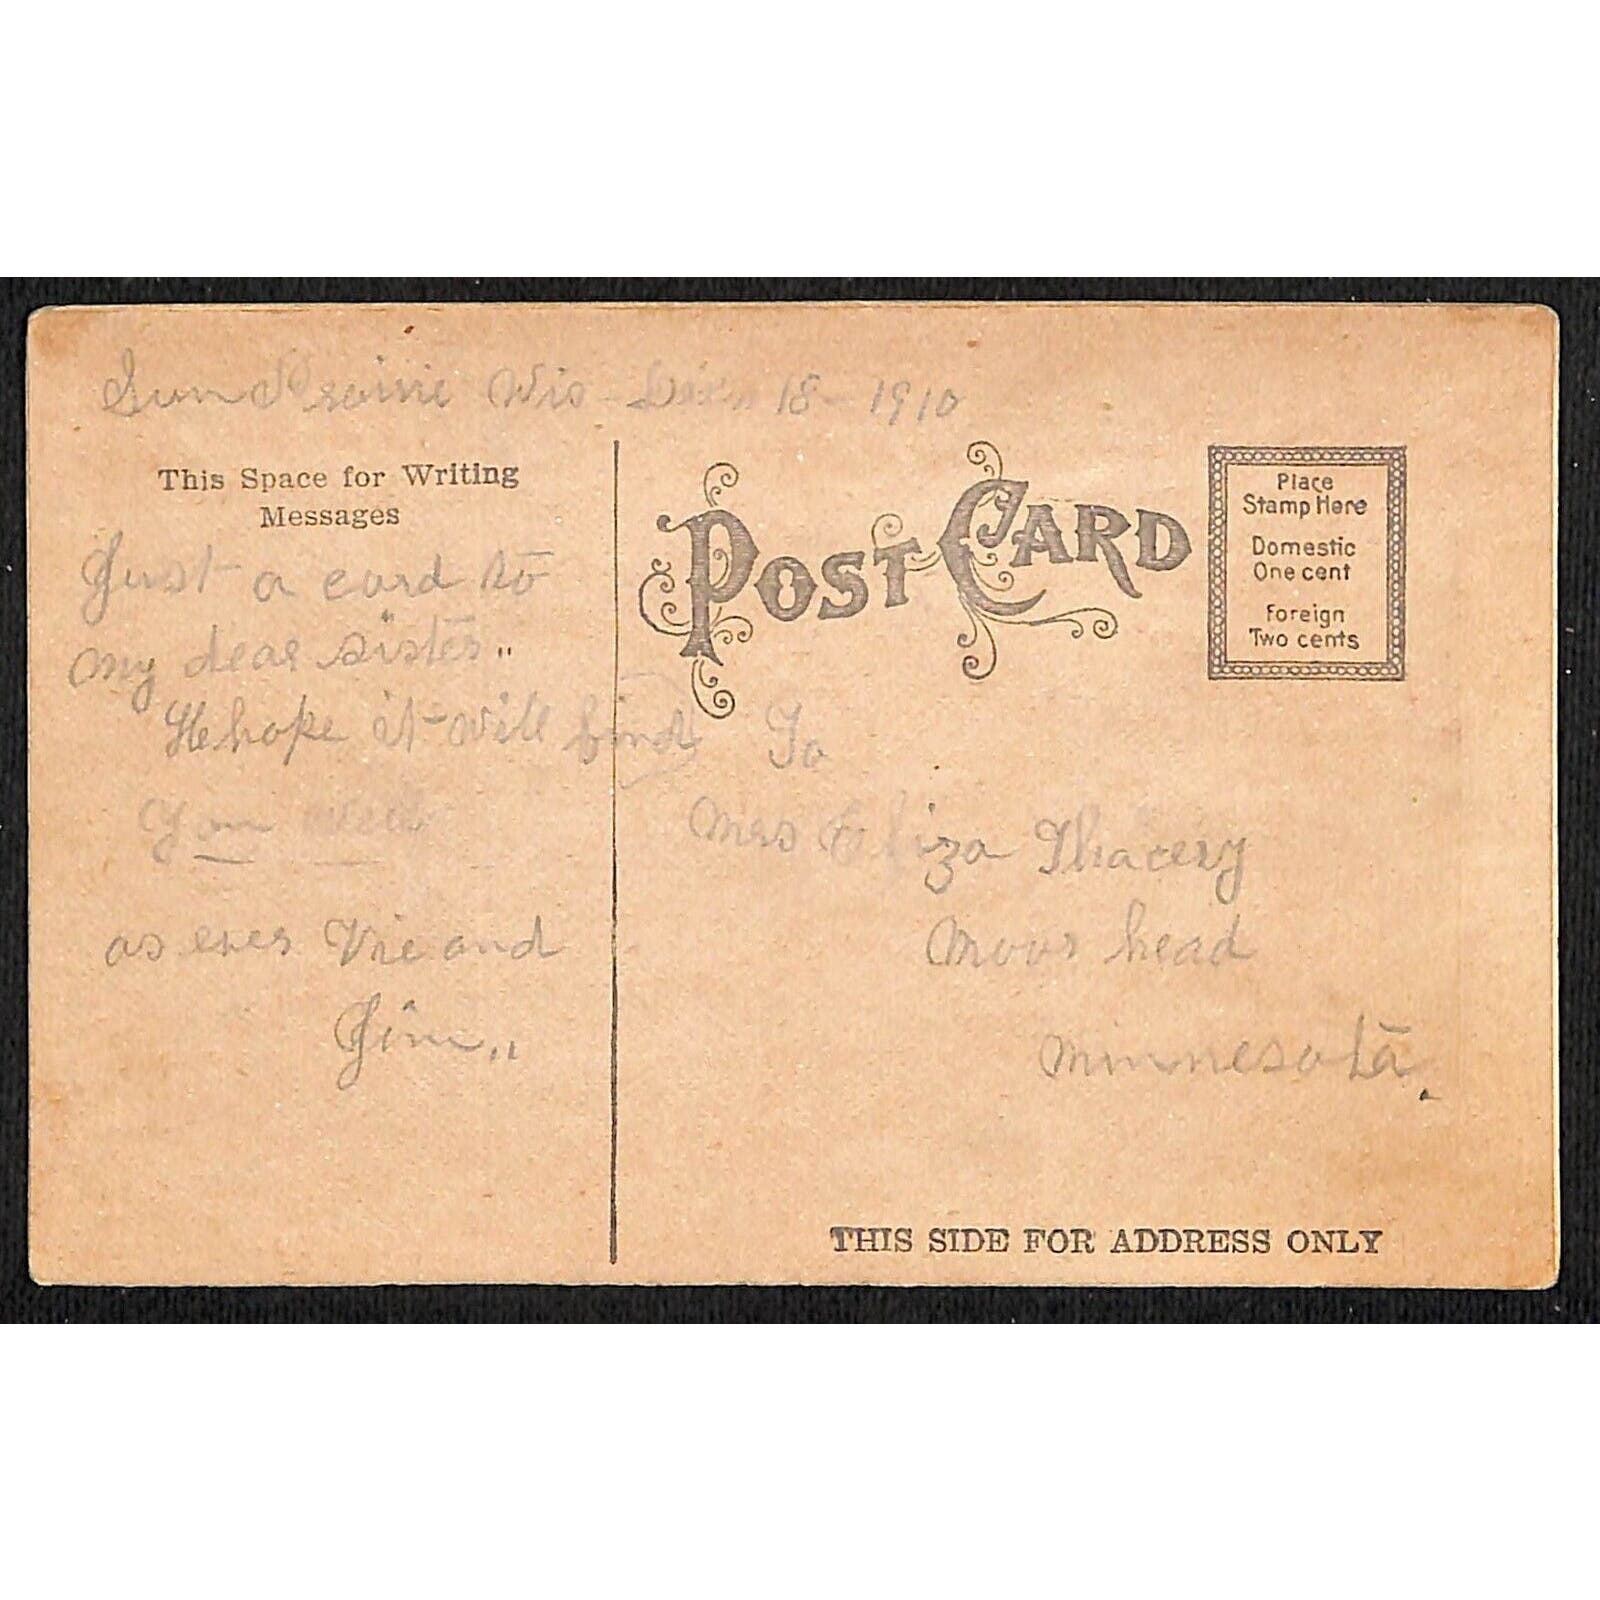 Sun Prairie Wis - 18 - 1910
This Space for Writing
Messages
Just a card to
my dear sister..
He hope it will find
You well
as ever Vie and
Jim..
POST CARD
Place
Stamp Here
Domestic
One cent
Foreign
Two cents
To
Mrs Eliza Thacery
Moor head
Minnesota.
THIS SIDE FOR ADDRESS ONLY